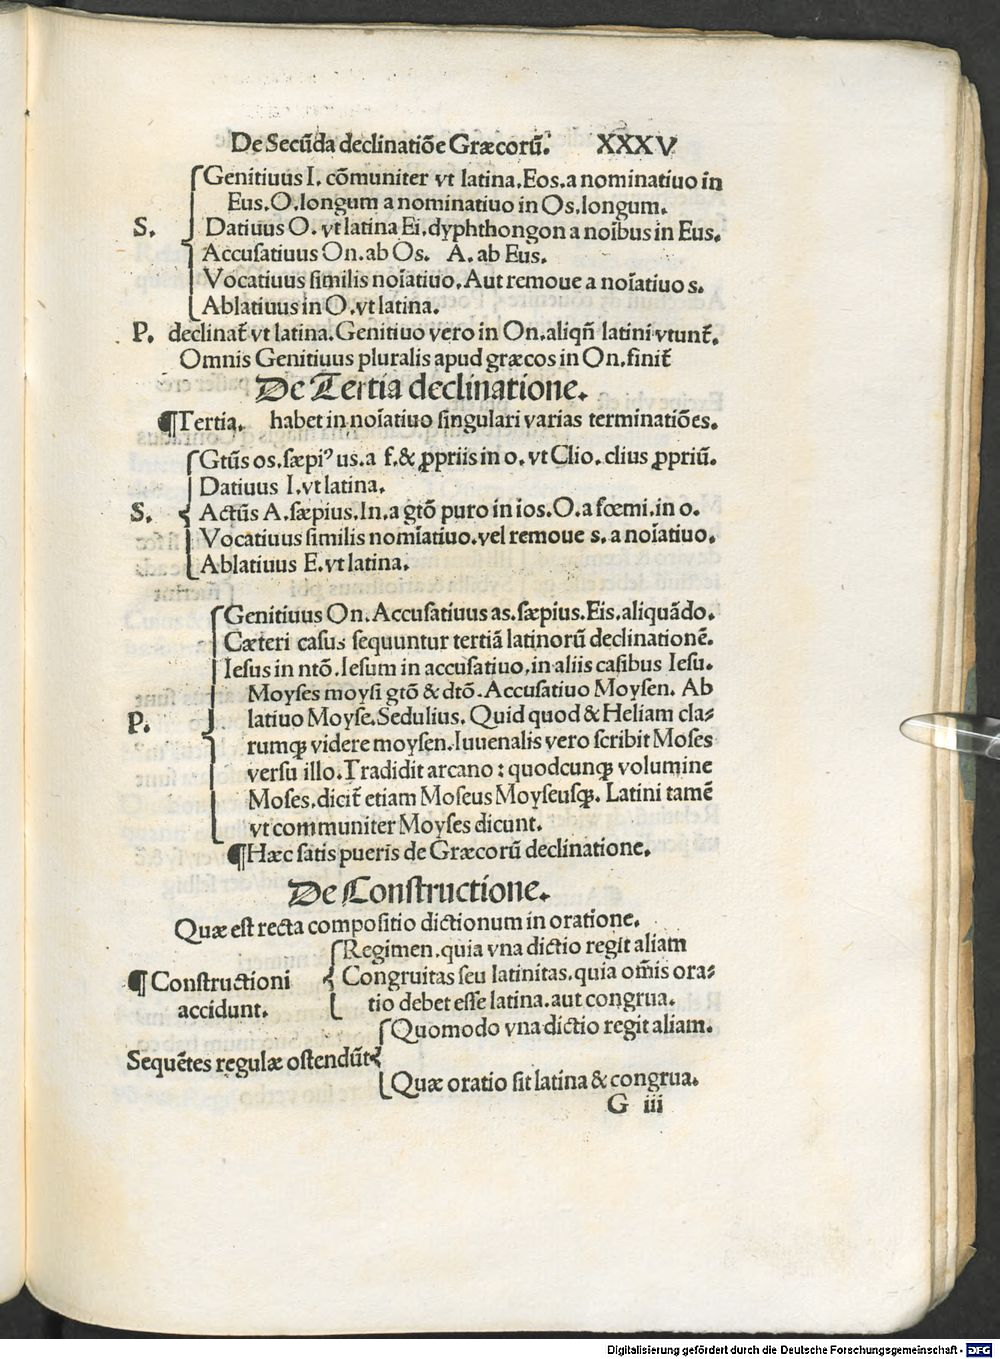 De Secūda declinatiōe Græcorū. XXXV
Genitiuus I. cōmuniter vt latina. Eos. a nominatiuo in
Eus. O. longum a nominatiuo in Os. longum.
S. Datiuus O. vt latina Ei. dyphthongon a noībus in Eus.
Accuſatiuus On. ab Os. A. ab Eus.
Vocatiuus ſimilis noīatiuo. Aut remoue a noīatiuo s.
Ablatiuus in O. vt latina.
P. declinat̄ vt latina. Genitiuo vero in On. aliqn̄ latini vtunt̄.
Omnis Genitiuus pluralis apud græcos in On. finit̄
De Tertia declinatione.
¶Tertia. habet in noīatiuo ſingulari varias terminatiōes.
Gtūs os. ſæpiꝰ us. a f. & ꝓpriis in o. vt Clio. clius ꝓpriū.
Datiuus I. vt latina.
S. Actūs A. ſæpius. In. a gtō puro in ios. O. a fœmi. in o.
Vocatiuus ſimilis nomīatiuo. vel remoue s. a noīatiuo.
Ablatiuus E. vt latina.
Genitiuus On. Accuſatiuus as. ſæpius. Eis. aliquādo.
Cæteri caſus ſequuntur tertiā latinorū declinationē.
Ieſus in ntō. Ieſum in accuſatiuo. in aliis caſibus Ieſu.
Moyſes moyſi gtō & dtō. Accuſatiuo Moyſen. Ab
P. latiuo Moyſe. Sedulius. Quid quod & Heliam cla⸗
rumqꝫ videre moyſen. Iuuenalis vero ſcribit Moſes
verſu illo. Tradidit arcano : quodcunqꝫ volumine
Moſes. dicit̄ etiam Moſeus Moyſeuſqꝫ. Latini tamē
vt communiter Moyſes dicunt.
¶Hæc ſatis pueris de Græcorū declinatione.
De Conſtructione.
Quæ eſt recta compoſitio dictionum in oratione.
Regimen. quia vna dictio regit aliam
¶Conſtructioni Congruitas ſeu latinitas. quia om̄is ora⸗
accidunt. tio debet eſſe latina. aut congrua.
Quomodo vna dictio regit aliam.
Sequētes regulæ oſtendūt
Quæ oratio ſit latina & congrua.
G iii
Digitalisierung gefördert durch die Deutsche Forschungsgemeinschaft - DFG